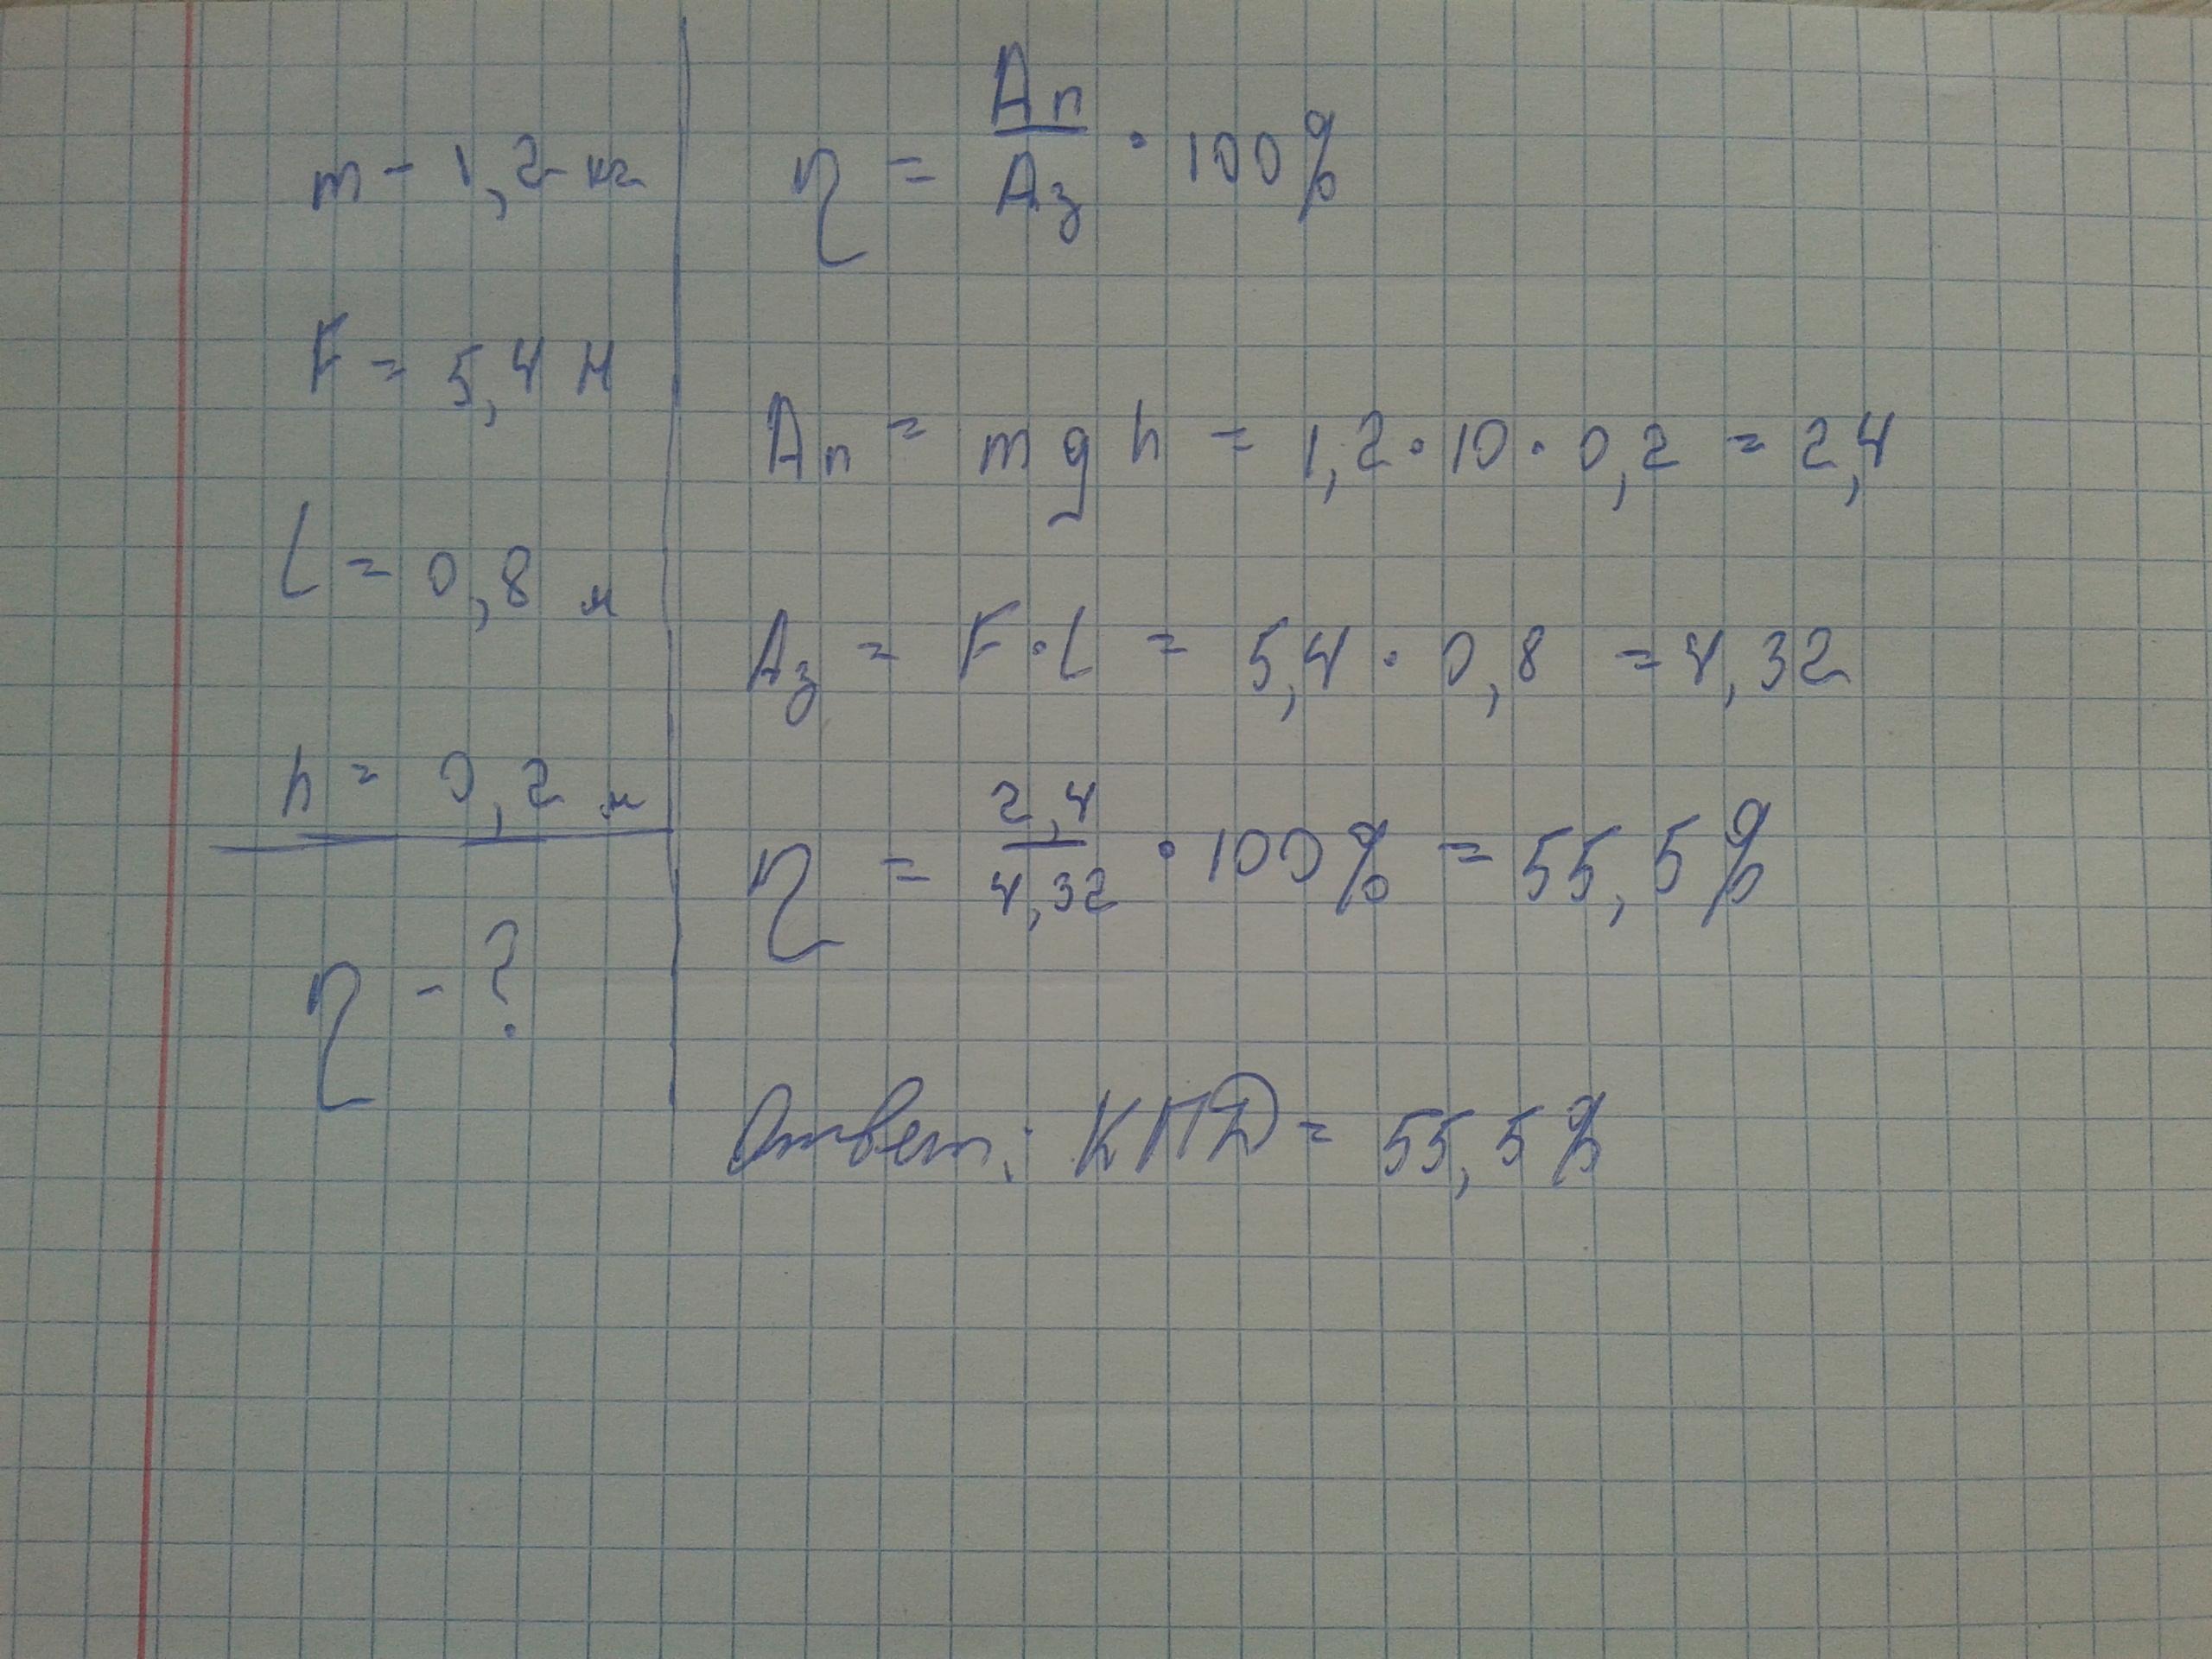 m - 1,2 кг
F = 5,4 Н
l = 0,8 м
h = 0,2 м
η - ?
η = Aп/Aз · 100%
Aп = mgh = 1,2 · 10 · 0,2 = 2,4
Aз = F · l = 5,4 · 0,8 = 4,32
η = 2,4/4,32 · 100% = 55,5%
Ответ: КПД = 55,5%